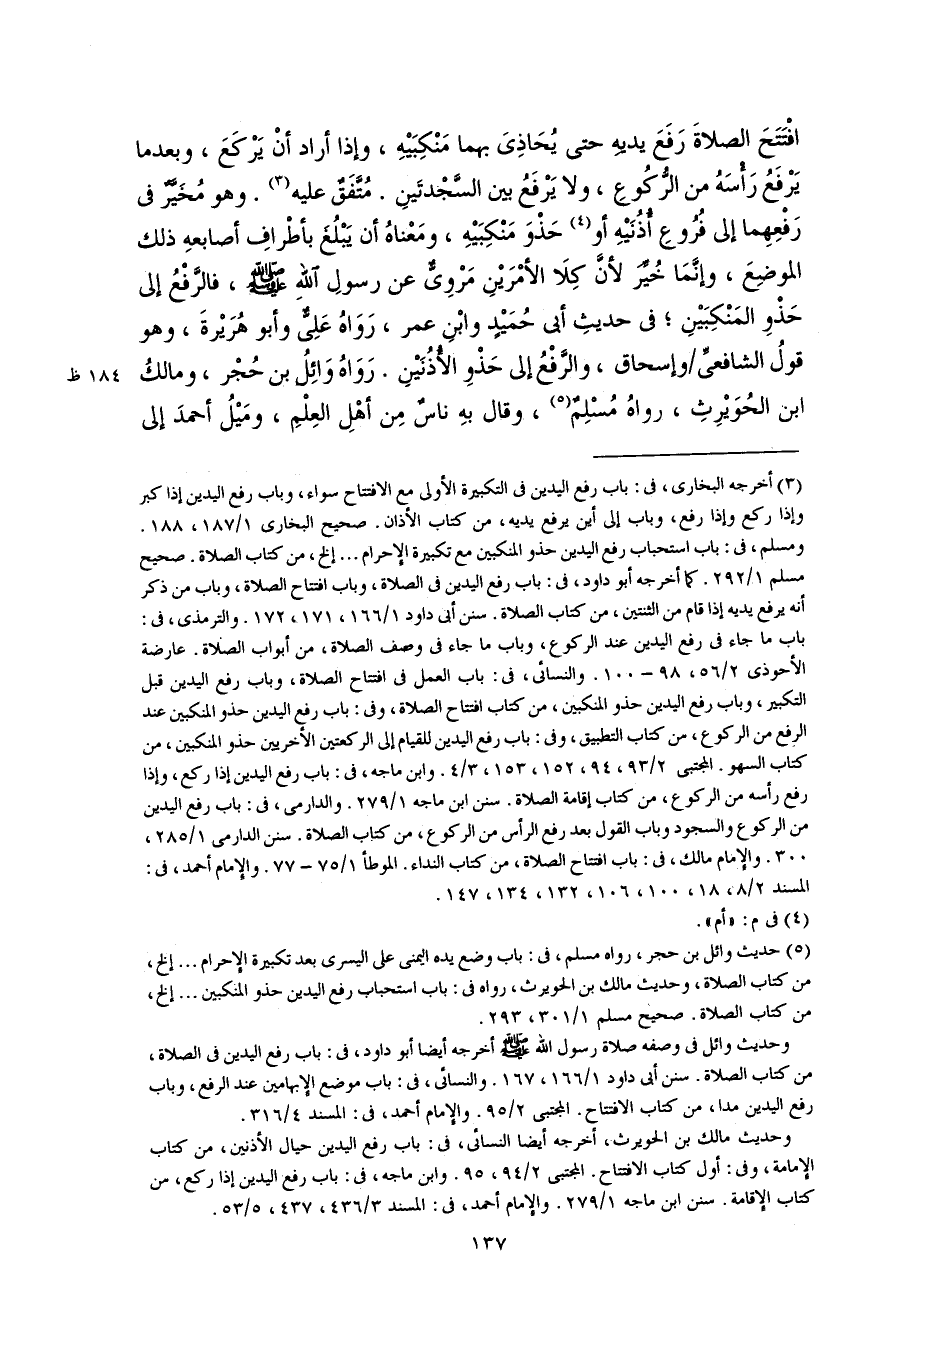 افْتَتَحَ الصلاةَ رَفَعَ يديهِ حتى يُحَاذِىَ بهما مَنْكِبَيْهِ ، وإذا أراد أنْ يَرْكَعَ ، وبعدما
يَرْفَعُ رَأْسَهُ من الرُّكُوعِ ، ولا يَرْفَعُ بين السَّجْدتَينِ . مُتَّفَقٌ عليه(٣) . وهو مُخَيَّرٌ فى
رَفْعِهما إلى فُرُوعِ أُذُنَيْهِ أو(٤) حَذْوَ مَنْكِبَيْهِ ، ومَعْناهُ أن يَبْلُغَ بأطْرافِ أصابعِهِ ذلك
الموضِعَ ، وإنَّمَا خُيِّرَ لأنَّ كِلَا الأمْرَيْنِ مَرْوِىٌّ عن رسولِ اللهِ ﷺ ، فالرَّفْعُ إلى
حَذْوِ المَنْكِبَيْنِ ؛ فى حديثِ أبى حُمَيْدٍ وابْنِ عمر ، رَوَاهُ عَلِىٌّ وأبو هُرَيْرةَ ، وهو
قولُ الشافعىِّ/وإسحاق ، والرَّفْعُ إلى حَذْوِ الأُذُنَيْنِ . رَوَاهُ وَائِلُ بن حُجْر ، ومالكُ ١٨٤ ظ
ابن الحُوَيْرِثِ ، رواهُ مُسْلِمٌ(٥) ، وقال بهِ ناسٌ مِن أهْلِ العِلْمِ ، ومَيْلُ أحمدَ إلى
(٣) أخرجه البخارى ، فى : باب رفع اليدين فى التكبيرة الأولى مع الافتتاح سواء ، وباب رفع اليدين إذا كبر
وإذا ركع وإذا رفع ، وباب إلى أين يرفع يديه ، من كتاب الأذان . صحيح البخارى ١/١٨٧ ، ١٨٨ .
ومسلم ، فى : باب استحباب رفع اليدين حذو المنكبين مع تكبيرة الإحرام ... إلخ ، من كتاب الصلاة . صحيح
مسلم ١/٢٩٢ . كما أخرجه أبو داود ، فى : باب رفع اليدين فى الصلاة ، وباب افتتاح الصلاة ، وباب من ذكر
أنه يرفع يديه إذا قام من الثنتين ، من كتاب الصلاة . سنن أبى داود ١/١٦٦ ، ١٧١ ، ١٧٢ . والترمذى ، فى :
باب ما جاء فى رفع اليدين عند الركوع ، وباب ما جاء فى وصف الصلاة ، من أبواب الصلاة . عارضة
الأحوذى ٢/٥٦ ، ٩٨ – ١٠٠ . والنسائى ، فى : باب العمل فى افتتاح الصلاة ، وباب رفع اليدين قبل
التكبير ، وباب رفع اليدين حذو المنكبين ، من كتاب افتتاح الصلاة ، وفى : باب رفع اليدين حذو المنكبين عند
الرفع من الركوع ، من كتاب التطبيق ، وفى : باب رفع اليدين للقيام إلى الركعتين الأخريين حذو المنكبين ، من
كتاب السهو . المجتبى ٢/٩٣ ، ٩٤ ، ١٥٢ ، ١٥٣ ، ٣/٤ . وابن ماجه ، فى : باب رفع اليدين إذا ركع ، وإذا
رفع رأسه من الركوع ، من كتاب إقامة الصلاة . سنن ابن ماجه ١/٢٧٩ . والدارمى ، فى : باب رفع اليدين
من الركوع والسجود وباب القول بعد رفع الرأس من الركوع ، من كتاب الصلاة . سنن الدارمى ١/٢٨٥ ،
٣٠٠ . والإمام مالك ، فى : باب افتتاح الصلاة ، من كتاب النداء . الموطأ ١/٧٥ – ٧٧ . والإمام أحمد ، فى :
المسند ٢/٨ ، ١٨ ، ١٠٠ ، ١٠٦ ، ١٣٢ ، ١٣٤ ، ١٤٧ .
(٤) فى م : «أم» .
(٥) حديث وائل بن حجر ، رواه مسلم ، فى : باب وضع يده اليمنى على اليسرى بعد تكبيرة الإحرام ... إلخ ،
من كتاب الصلاة ، وحديث مالك بن الحويرث ، رواه فى : باب استحباب رفع اليدين حذو المنكبين ... إلخ ،
من كتاب الصلاة . صحيح مسلم ١/٣٠١ ، ٢٩٣ .
وحديث وائل فى وصفه صلاة رسول الله ﷺ أخرجه أيضا أبو داود ، فى : باب رفع اليدين فى الصلاة ،
من كتاب الصلاة . سنن أبى داود ١/١٦٦ ، ١٦٧ . والنسائى ، فى : باب موضع الإبهامين عند الرفع ، وباب
رفع اليدين مدا ، من كتاب الافتتاح . المجتبى ٢/٩٥ . والإمام أحمد ، فى : المسند ٤/٣١٦ .
وحديث مالك بن الحويرث ، أخرجه أيضا النسائى ، فى : باب رفع اليدين حيال الأذنين ، من كتاب
الإمامة ، وفى : أول كتاب الافتتاح . المجتبى ٢/٩٤ ، ٩٥ . وابن ماجه ، فى : باب رفع اليدين إذا ركع ، من
كتاب الإقامة . سنن ابن ماجه ١/٢٧٩ . والإمام أحمد ، فى : المسند ٣/٤٣٦ ، ٤٣٧ ، ٥/٥٣ .
١٣٧